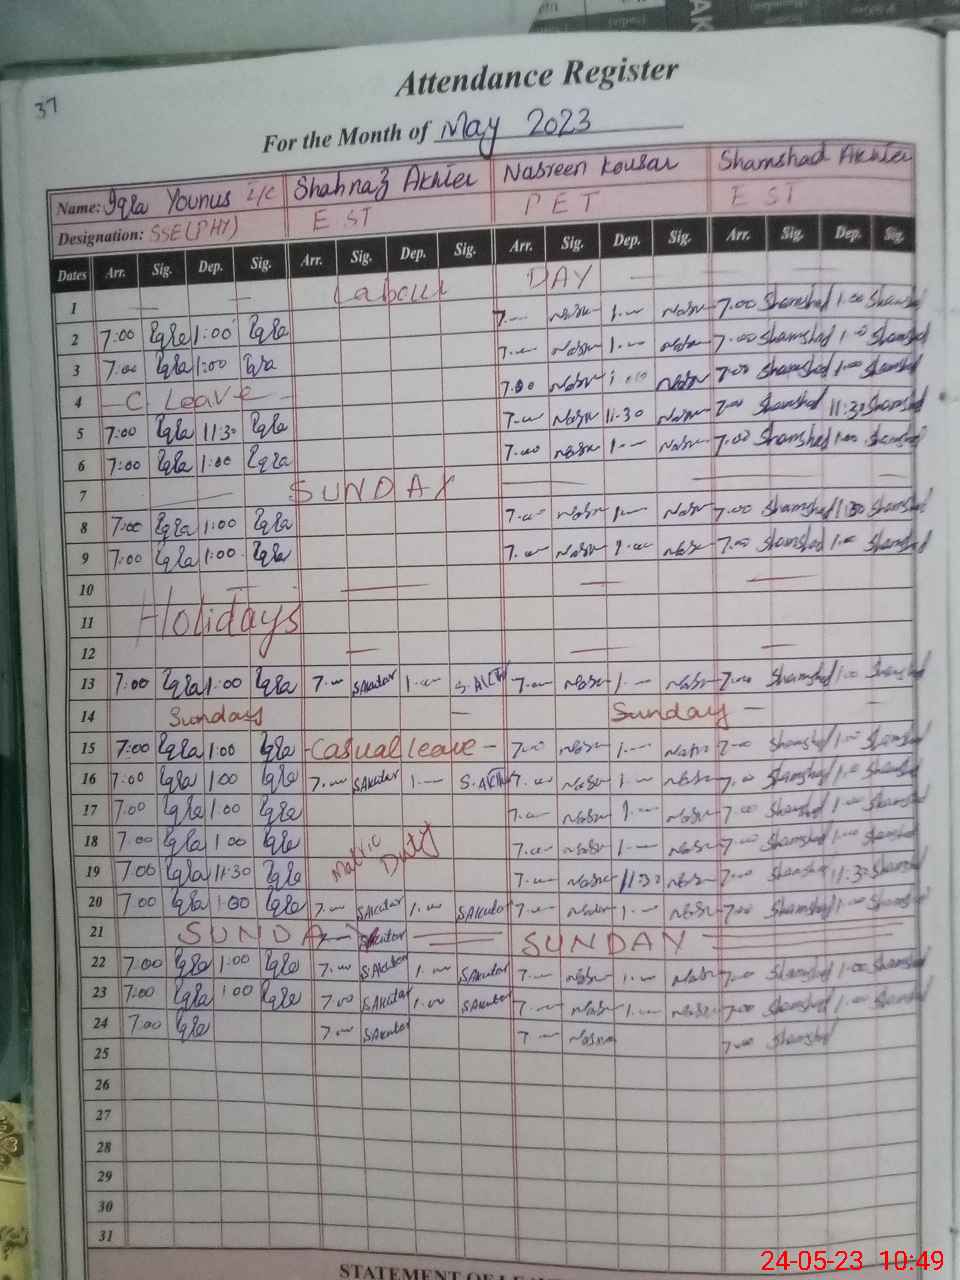 37
Attendance Register
For the Month of May 2023
Name: Iqra Younus I/C Shahnaz Akhter Nasreen Kousar Shamshad Akhter
Designation: SSE(PHY) EST PET EST
Dates Arr. Sig. Dep. Sig. Arr. Sig. Dep. Sig. Arr. Sig. Dep. Sig. Arr. Sig. Dep. Sig.
1 Labour DAY
2 7:00 Iqra 1:00 Iqra 7.— Nasrn 1.— Nasrn 7.00 Shamshad 1.00 Shamshad
3 7:00 Iqra 1:00 Iqra 7.— Nasrn 1.— Nasrn 7.00 Shamshad 1.00 Shamshad
4 C Leave 7.00 Nasrn 1.00 Nasrn 7.00 Shamshad 1.00 Shamshad
5 7:00 Iqra 11:30 Iqra 7.— Nasrn 11.30 Nasrn 7.00 Shamshad 11:30 Shamshad
6 7:00 Iqra 1:00 Iqra 7.00 Nasrn 1.— Nasrn 7.00 Shamshad 1.00 Shamshad
7 SUNDAY
8 7:00 Iqra 1:00 Iqra 7.— Nasrn 1.— Nasrn 7.00 Shamshad 1:30 Shamshad
9 7:00 Iqra 1:00 Iqra 7.— Nasrn 1.— Nasrn 7.00 Shamshad 1.00 Shamshad
10
11 Holidays
12
13 7:00 Iqra 1:00 Iqra 7.— SAkutar 1.— S.AKT 7.— Nasrn 1.— Nasrn 7.00 Shamshad 1.00 Shamshad
14 Sundays Sunday
15 7:00 Iqra 1:00 Iqra Casual leave 7.00 Nasrn 1.— Nasrn 7.00 Shamshad 1.00 Shamshad
16 7:00 Iqra 1:00 Iqra 7.— SAkutar 1.— S.AKT 7.— Nasrn 1.— Nasrn 7.00 Shamshad 1.00 Shamshad
17 7:00 Iqra 1:00 Iqra 7.— Nasrn 1.— Nasrn 7.00 Shamshad 1.00 Shamshad
18 7.00 Iqra 1:00 Iqra Matric Duty 7.— Nasrn 1.— Nasrn 7.00 Shamshad 1.00 Shamshad
19 7:00 Iqra 11:30 Iqra 7.— Nasrn 11.30 Nasrn 7.00 Shamshad 11:30 Shamshad
20 7:00 Iqra 1:00 Iqra 7.— SAkutar 1.— SAkutar 7.— Nasrn 1.— Nasrn 7.00 Shamshad 1.— Shamshad
21 SUNDAY SUNDAY
22 7:00 Iqra 1:00 Iqra 7.— SAkutar 1.— SAkutar 7.— Nasrn 1.— Nasrn 7.00 Shamshad 1:00 Shamshad
23 7:00 Iqra 1:00 Iqra 7.00 SAkutar 1.00 SAkutar 7.— Nasrn 1.— Nasrn 7.00 Shamshad 1.00 Shamshad
24 7:00 Iqra 7.— SAkutar 7.— Nasrn 7.00 Shamshad
25
26
27
28
29
30
31
24-05-23 10:49